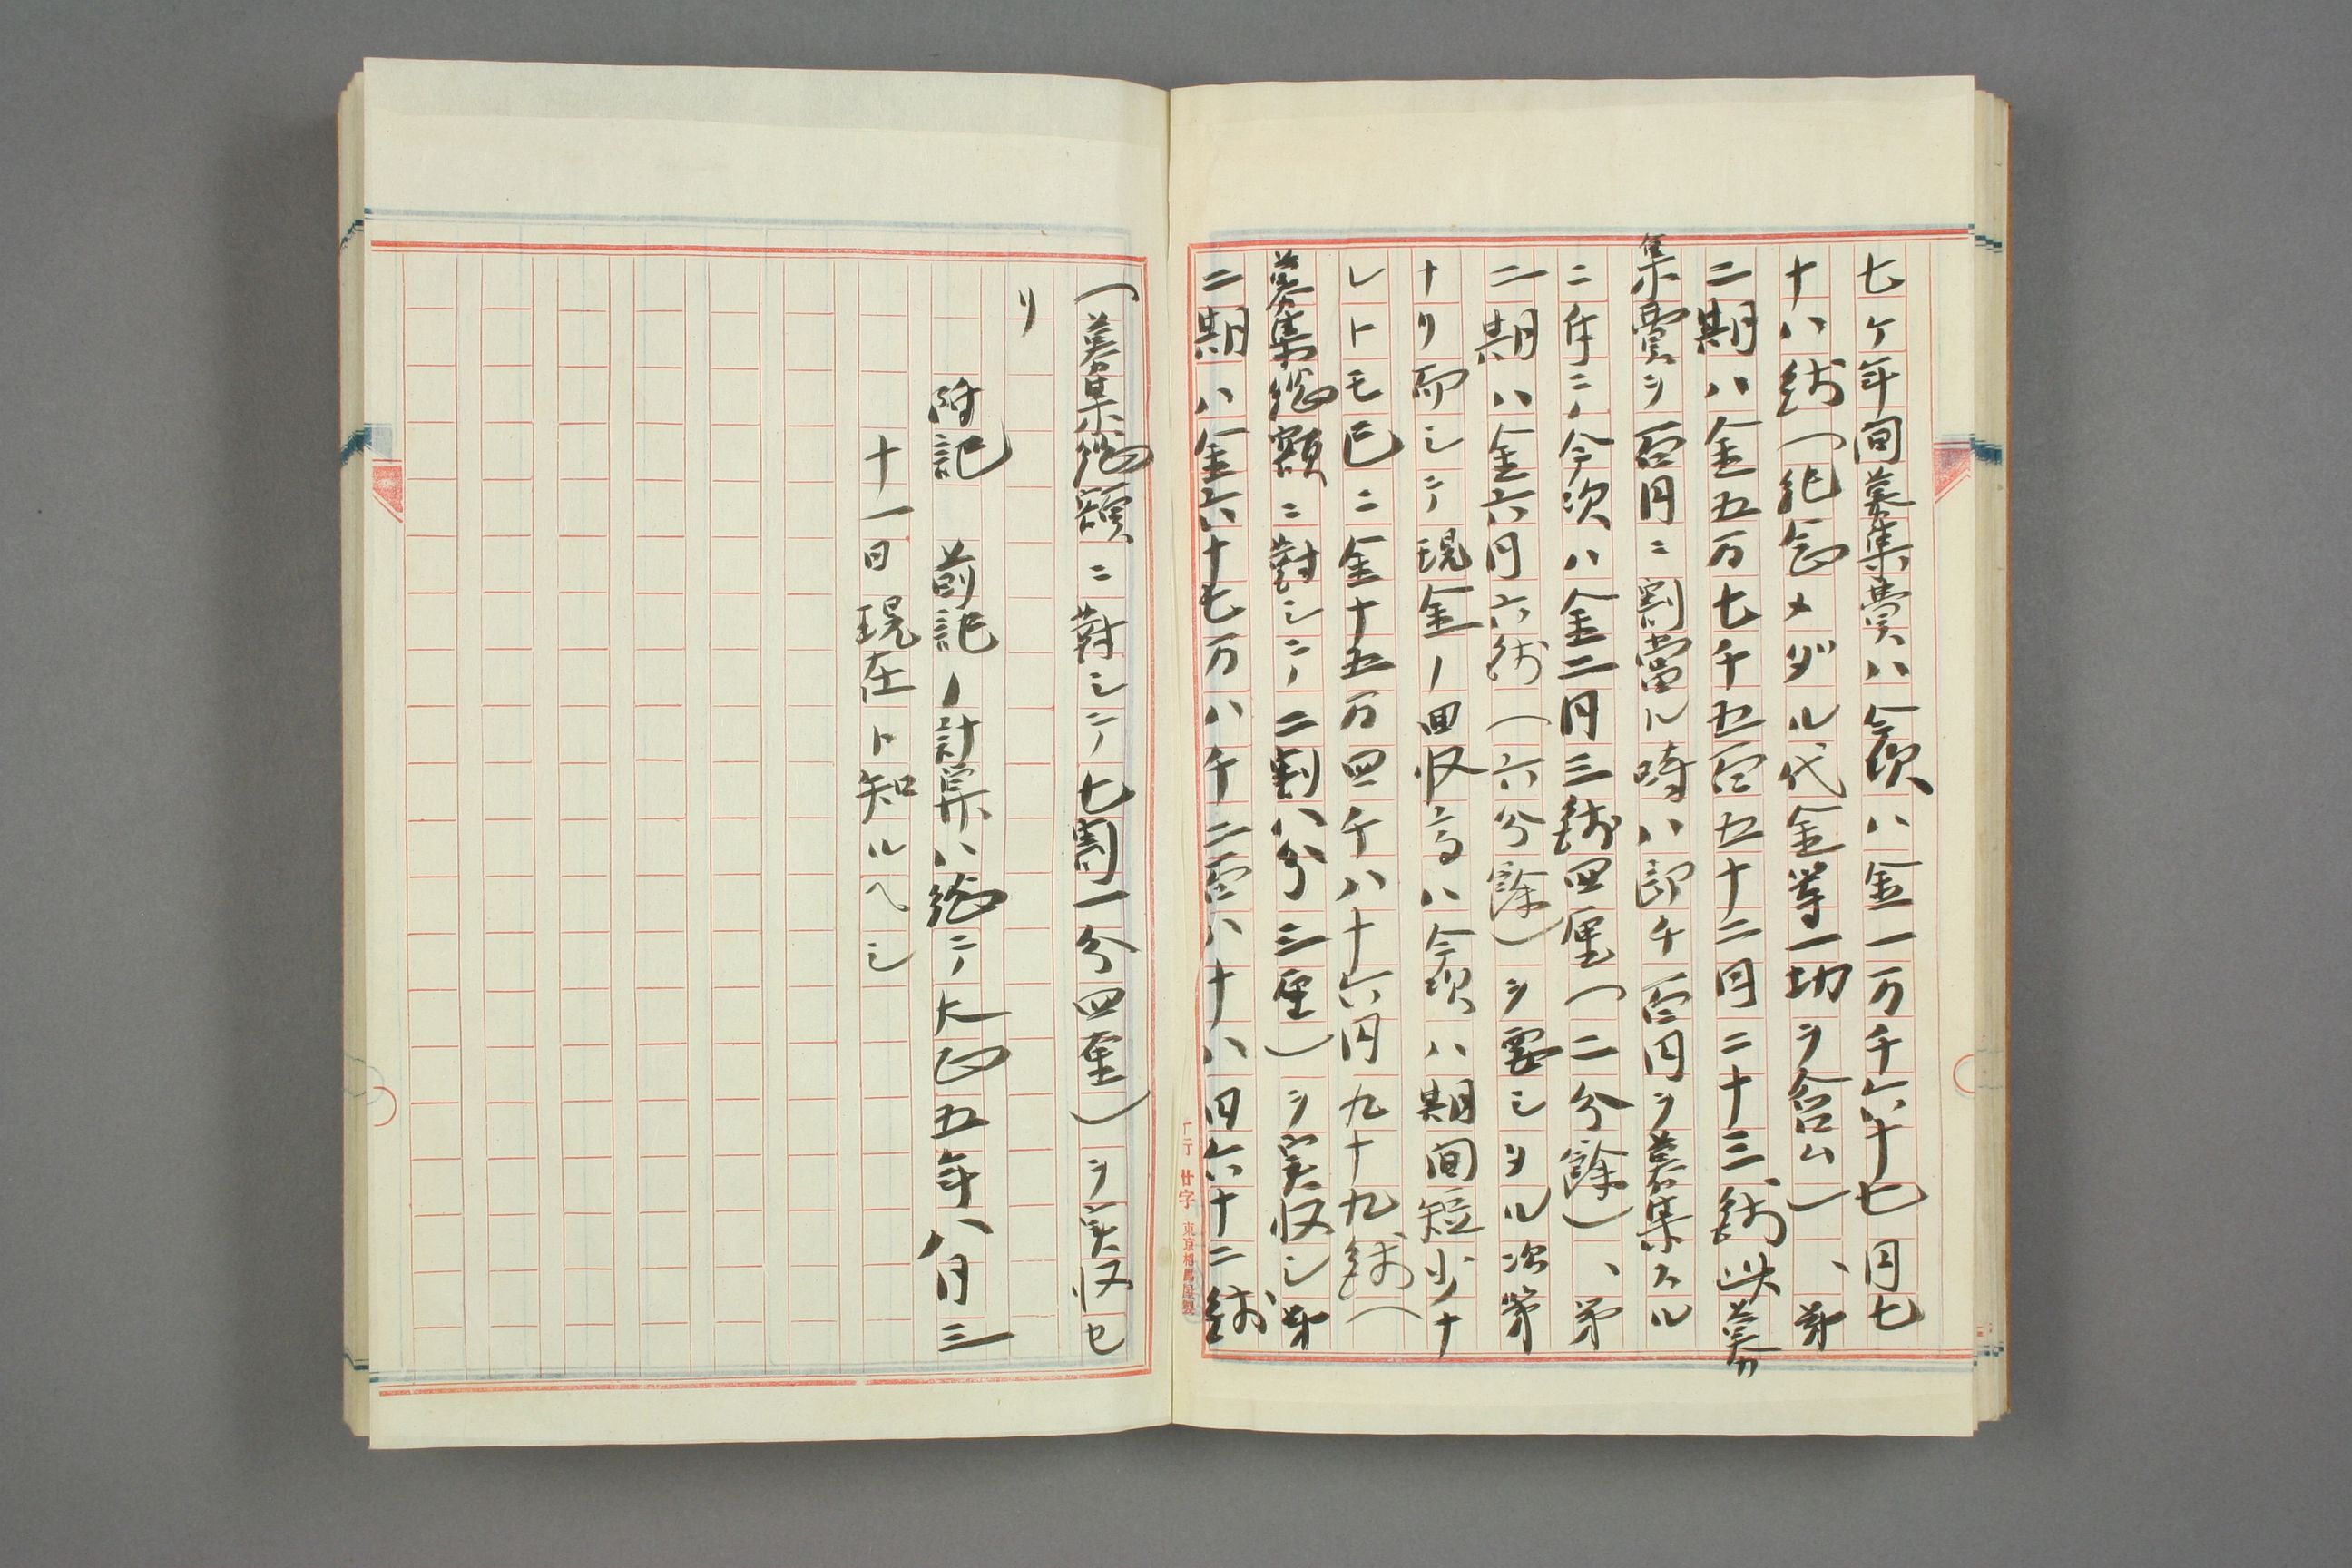 七ケ年間募集費ハ今次ハ金一万千六十七円七
十八銭(紀念メダル代金等一切ヲ含ム)、第
二期ハ金五万七千五百五十二円二十三銭此募
集費ヲ百円ニ割當ル時ハ即チ百円ヲ募集スル
ニ付ニテ今次ハ金二円三銭四厘(二分餘)、第
一期ハ金六円六銭(六分餘)ヲ要シタル次第
ナリ而シテ現金ノ回収高ハ今次ハ期間短少ナ
レトモ已ニ金十五万四千八十六円九十九銭(
募集総額ニ對シテ二割八分三厘)ヲ実収シ第
二期ハ金六十七万八千二百八十八円六十二銭
十行 廿字 東京相馬屋製
(募集総額ニ對シテ七割一分四厘)ヲ実収セ
リ
附記 前記ノ計算ハ総テ大正五年八月三
十一日現在ト知ルヘシ